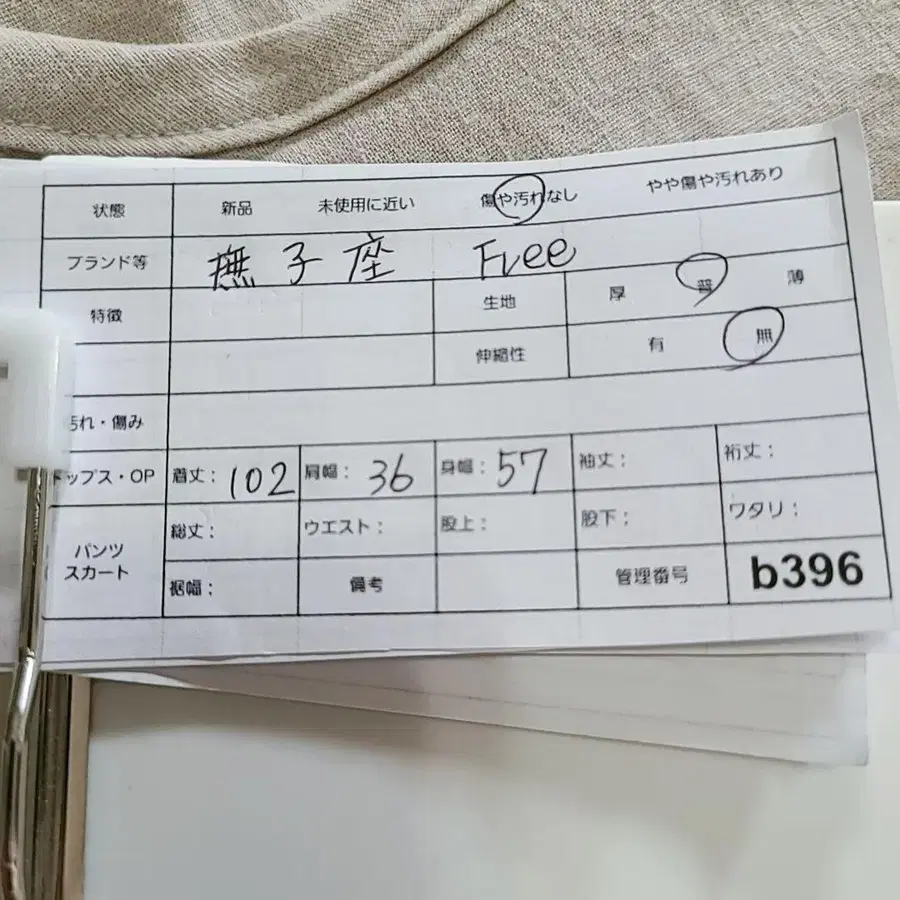 状態 新品 未使用に近い 傷や汚れなし やや傷や汚れあり
ブランド等 撫子座 Free
特徴 生地 厚 普 薄
伸縮性 有 無
汚れ・傷み
トップス・OP 着丈: 102 肩幅: 36 身幅: 57 袖丈: 裄丈:
パンツ スカート 総丈: ウエスト: 股上: 股下: ワタリ:
裾幅: 備考 管理番号 b396